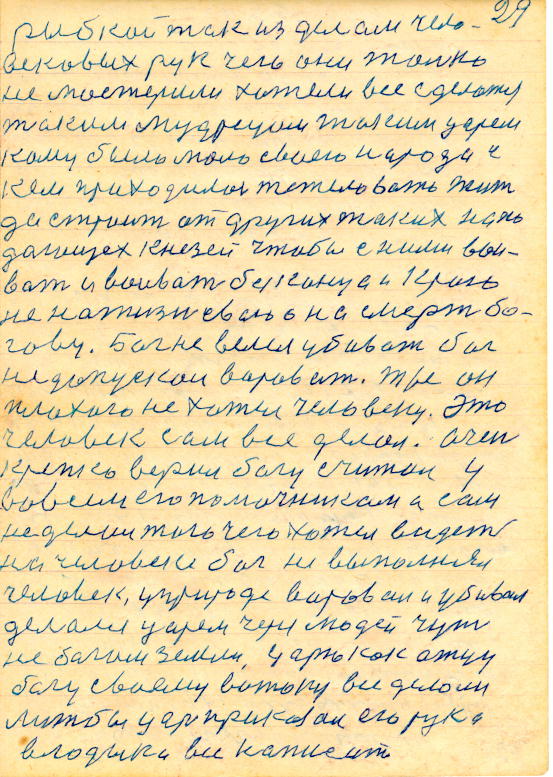 29
рыбкой так из делам чело-
вековых рук чего они только
не мостерили хотели все сделать
таким мудрецом таким царем
кому было мало своего народа и
кем приходилос тетеловать жит
да строит от других таких напо
дающех князей чтобы с ними вои-
ват и воиват без конца и кровь
не на жизн свою а на смерт бо-
гову. Бог не велел убиват бог
не допускал вороват. Тже он
плохого не хотел человеку. Это
человек сам все делал. Очен
крепко верил богу считал у
вовсем его помочником а сам
не делал того чего хотел видет
на человеке бог не выполнял
человек, у природе воровал и убивал
делали царем через людей чут
не богом земли, царю как отцу
богу своему вотоку все делали
литбы цар приказал его рука
владыка все написат